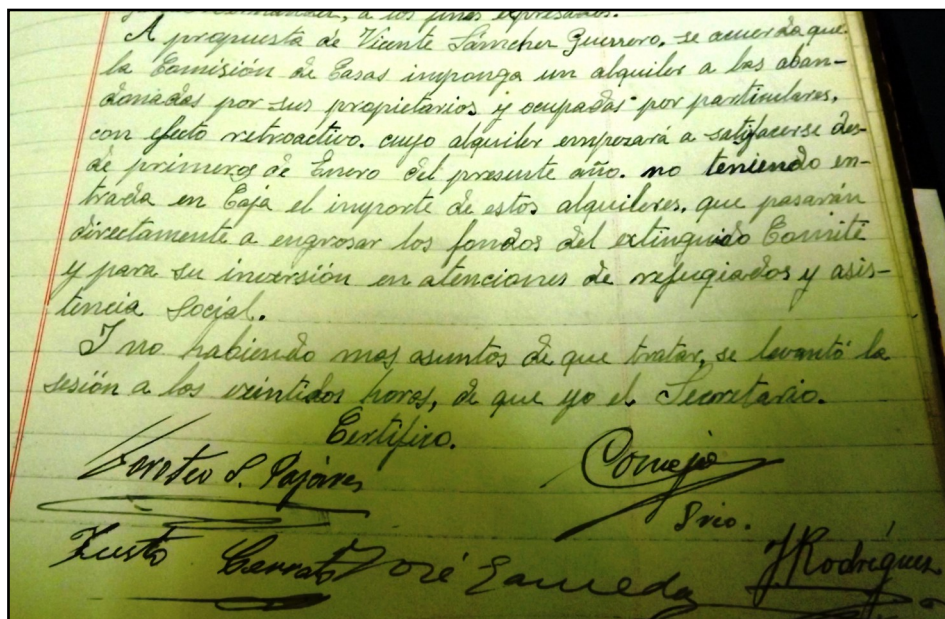 a los fines expresados.
A propuesta de Vicente Sánchez Guerrero, se acuerda que
la Comisión de Casas imponga un alquiler a las aban-
donadas por sus propietarios y ocupadas por particulares,
con efecto retroactivo, cuyo alquiler empezará a satisfacerse des-
de primero de Enero del presente año, no teniendo en-
trada en Caja el importe de estos alquileres, que pasarán
directamente a engrosar los fondos del extinguido Comité
y para su inversión en atenciones de refugiados y asis-
tencia Social.
Y no habiendo mas asuntos de que tratar, se levantó la
sesión a las veintidos horas, de que yo el Secretario.
Certifico.
Doroteo S. Pajares
Cornejo
Srio.
Justo
José
J Rodríguez